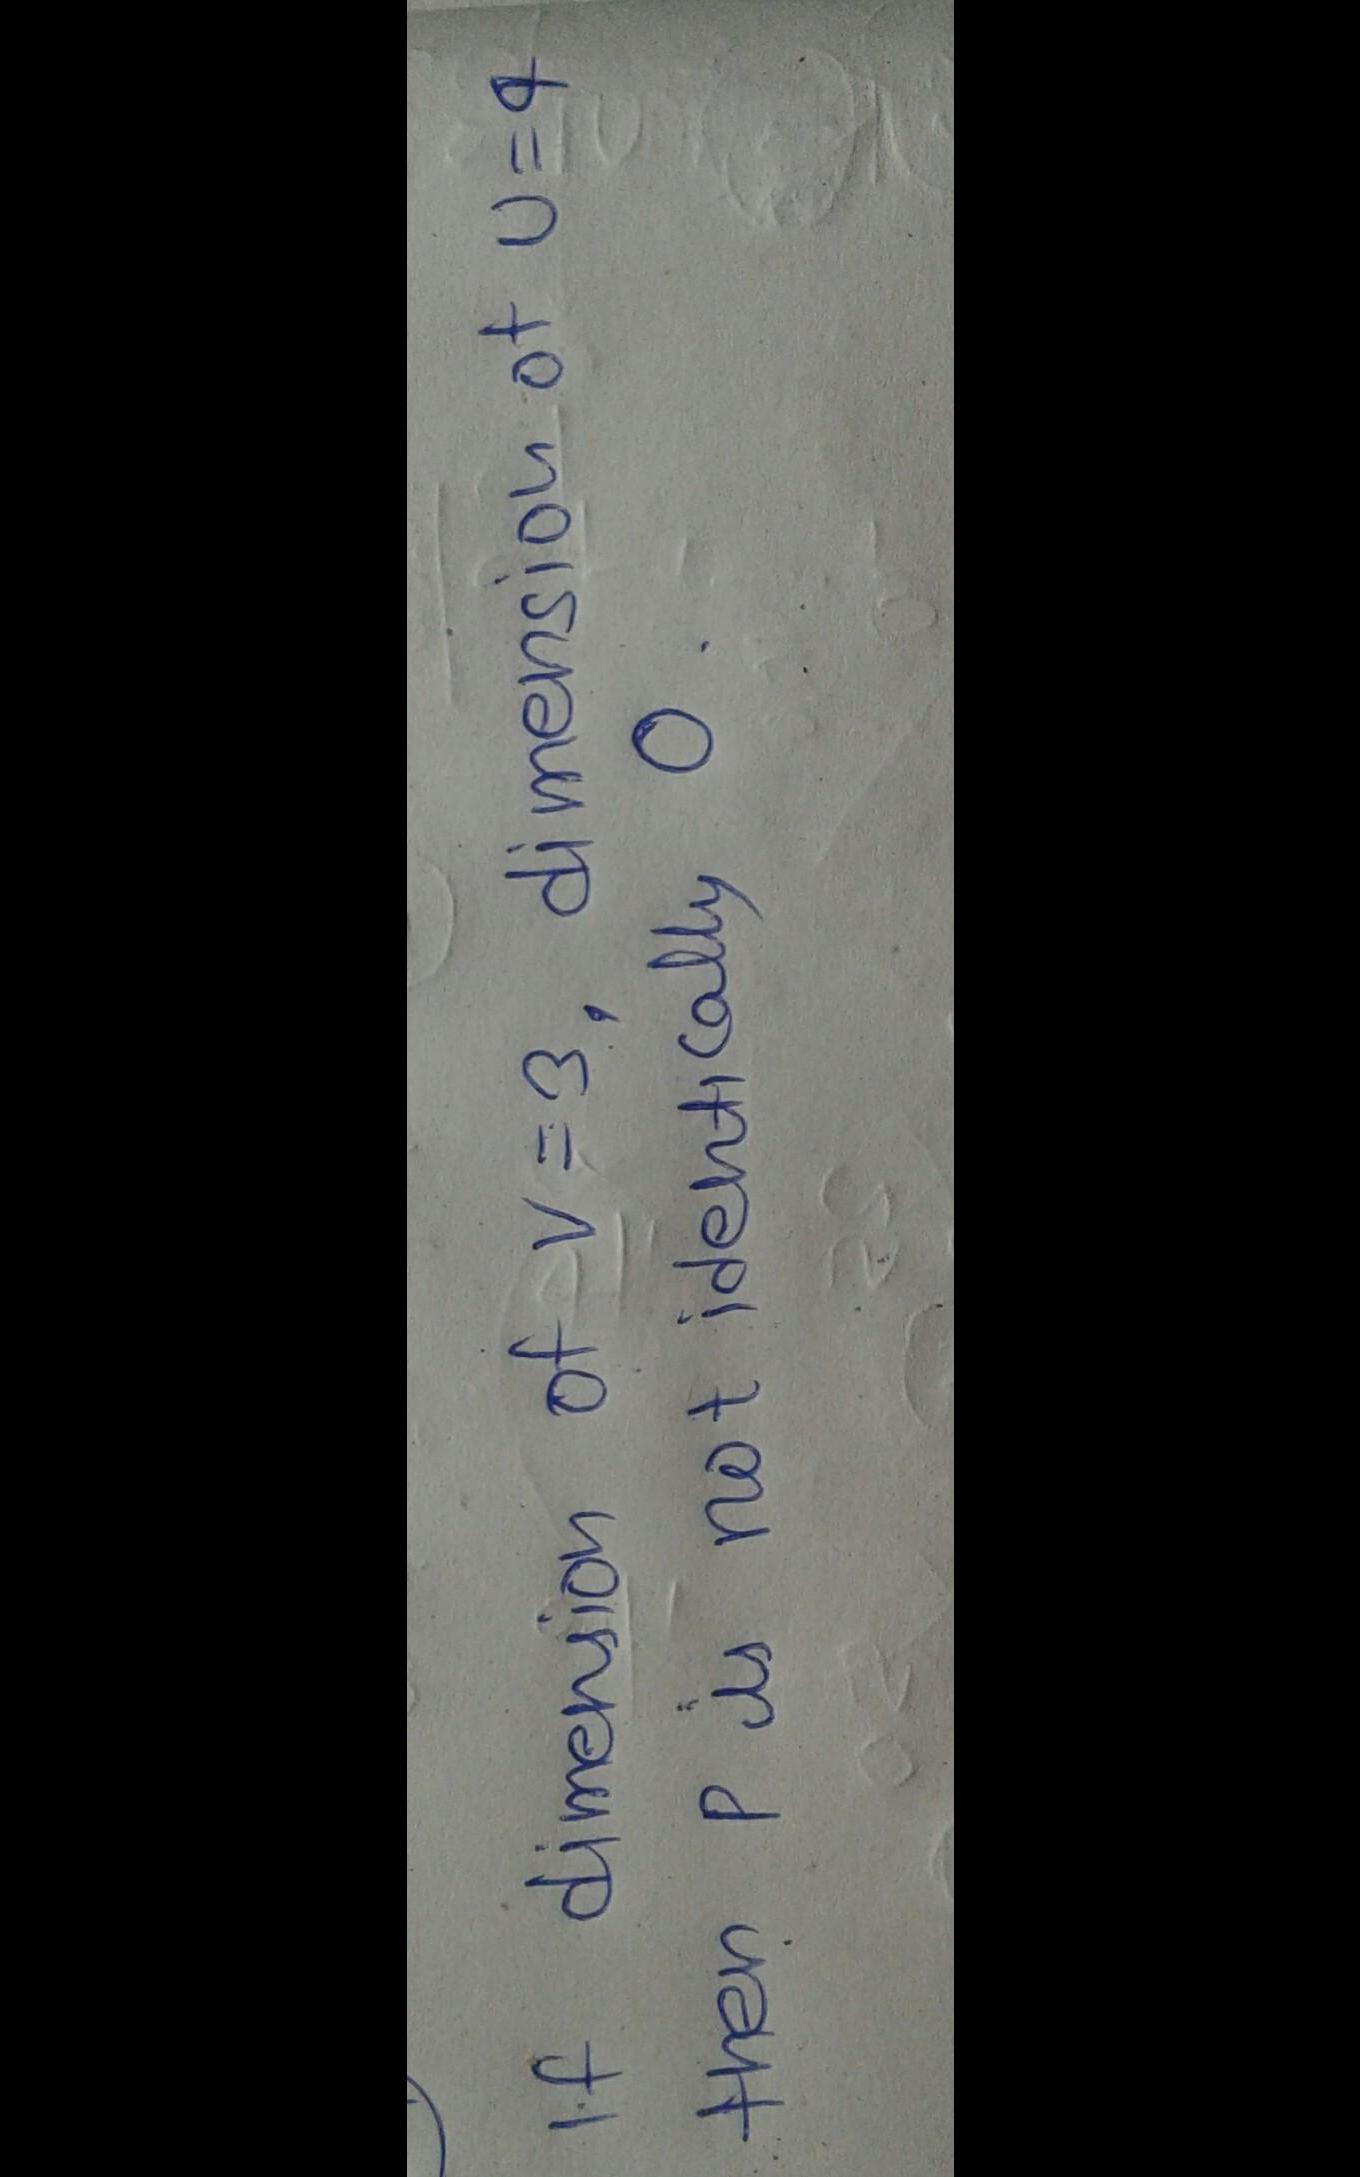 If dimension of V=3, dimension of U=4
then P is not identically 0.